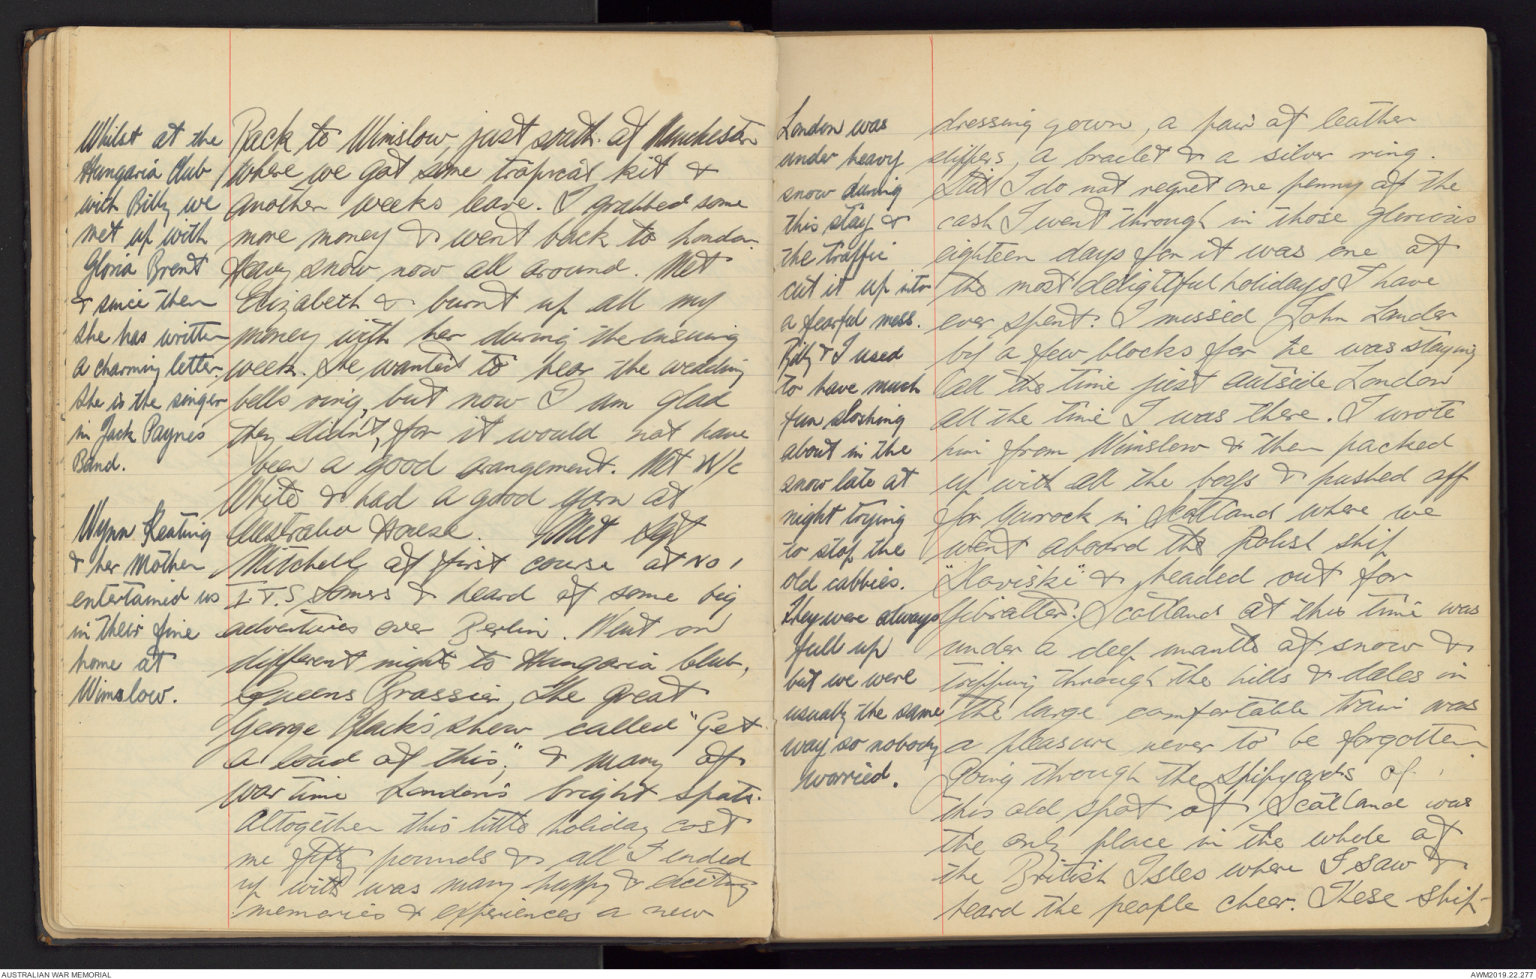 Whilst at the
Hungaria Club
with Billy we
met up with
Gloria Brent
& since then
she has written
a charming letter.
She is the singer
in Jack Paynes
Band.
Wynn Keating
& her Mother
entertained us
in their fine
home at
Wimslow.
Back to Wimslow, just south of Manchester
where we got some tropical kit &
another weeks leave. I grabbed some
more money & went back to London.
Heavy snow now all around. Met
Elizabeth & burnt up all my
money with her during the ensuing
week. She wanted to hear the wedding
bells ring, but now I am glad
they didn't, for it would not have
been a good arangement. Met W/c
White & had a good yarn at
Australia House. Met Sgt
Mitchell of first course at No 1
I.T.S Somers & heard of some big
adventures over Berlin. Went on
different nights to Hungaria Club,
Queens Brassier, the great
George Black's show called "Get
a load of this", & many of
war time London's bright spots.
Altogether this little holiday cost
me fifty pounds & all I ended
up with was many happy & exciting
memories & experiences a new
London was
under heavy
snow during
this stay &
the traffic
cut it up into
a fearful mess.
Billy & I used
to have much
fun sloshing
about in the
snow late at
night trying
to stop the
old cabbies.
They were always
full up
but we were
usually the same
way so nobody
worried.
dressing gown, a pair of leather
slippers, a braclet & a silver ring.
Still I do not regret one penny of the
cash I went through in those glorious
eighteen days for it was one of
the most delightful holidays I have
ever spent. I missed John Lander
by a few blocks for he was staying
all the time just outside London
all the time I was there. I wrote
him from Wimslow & then packed
up with all the boys & pushed off
for Gurrock in Scotland where we
went aboard the Polish ship
"Slaviski" & headed out for
Gibraltar. Scotland at this time was
under a deep mantle of snow &
tripping through the hills & dales in
the large comfortable train was
a pleasure never to be forgotten.
Going through the shipyards of
this old spot of Scotland was
the only place in the whole of
the British Isles where I saw &
heard the people cheer. These ship-
AUSTRALIAN WAR MEMORIAL
AWM2019.22.277